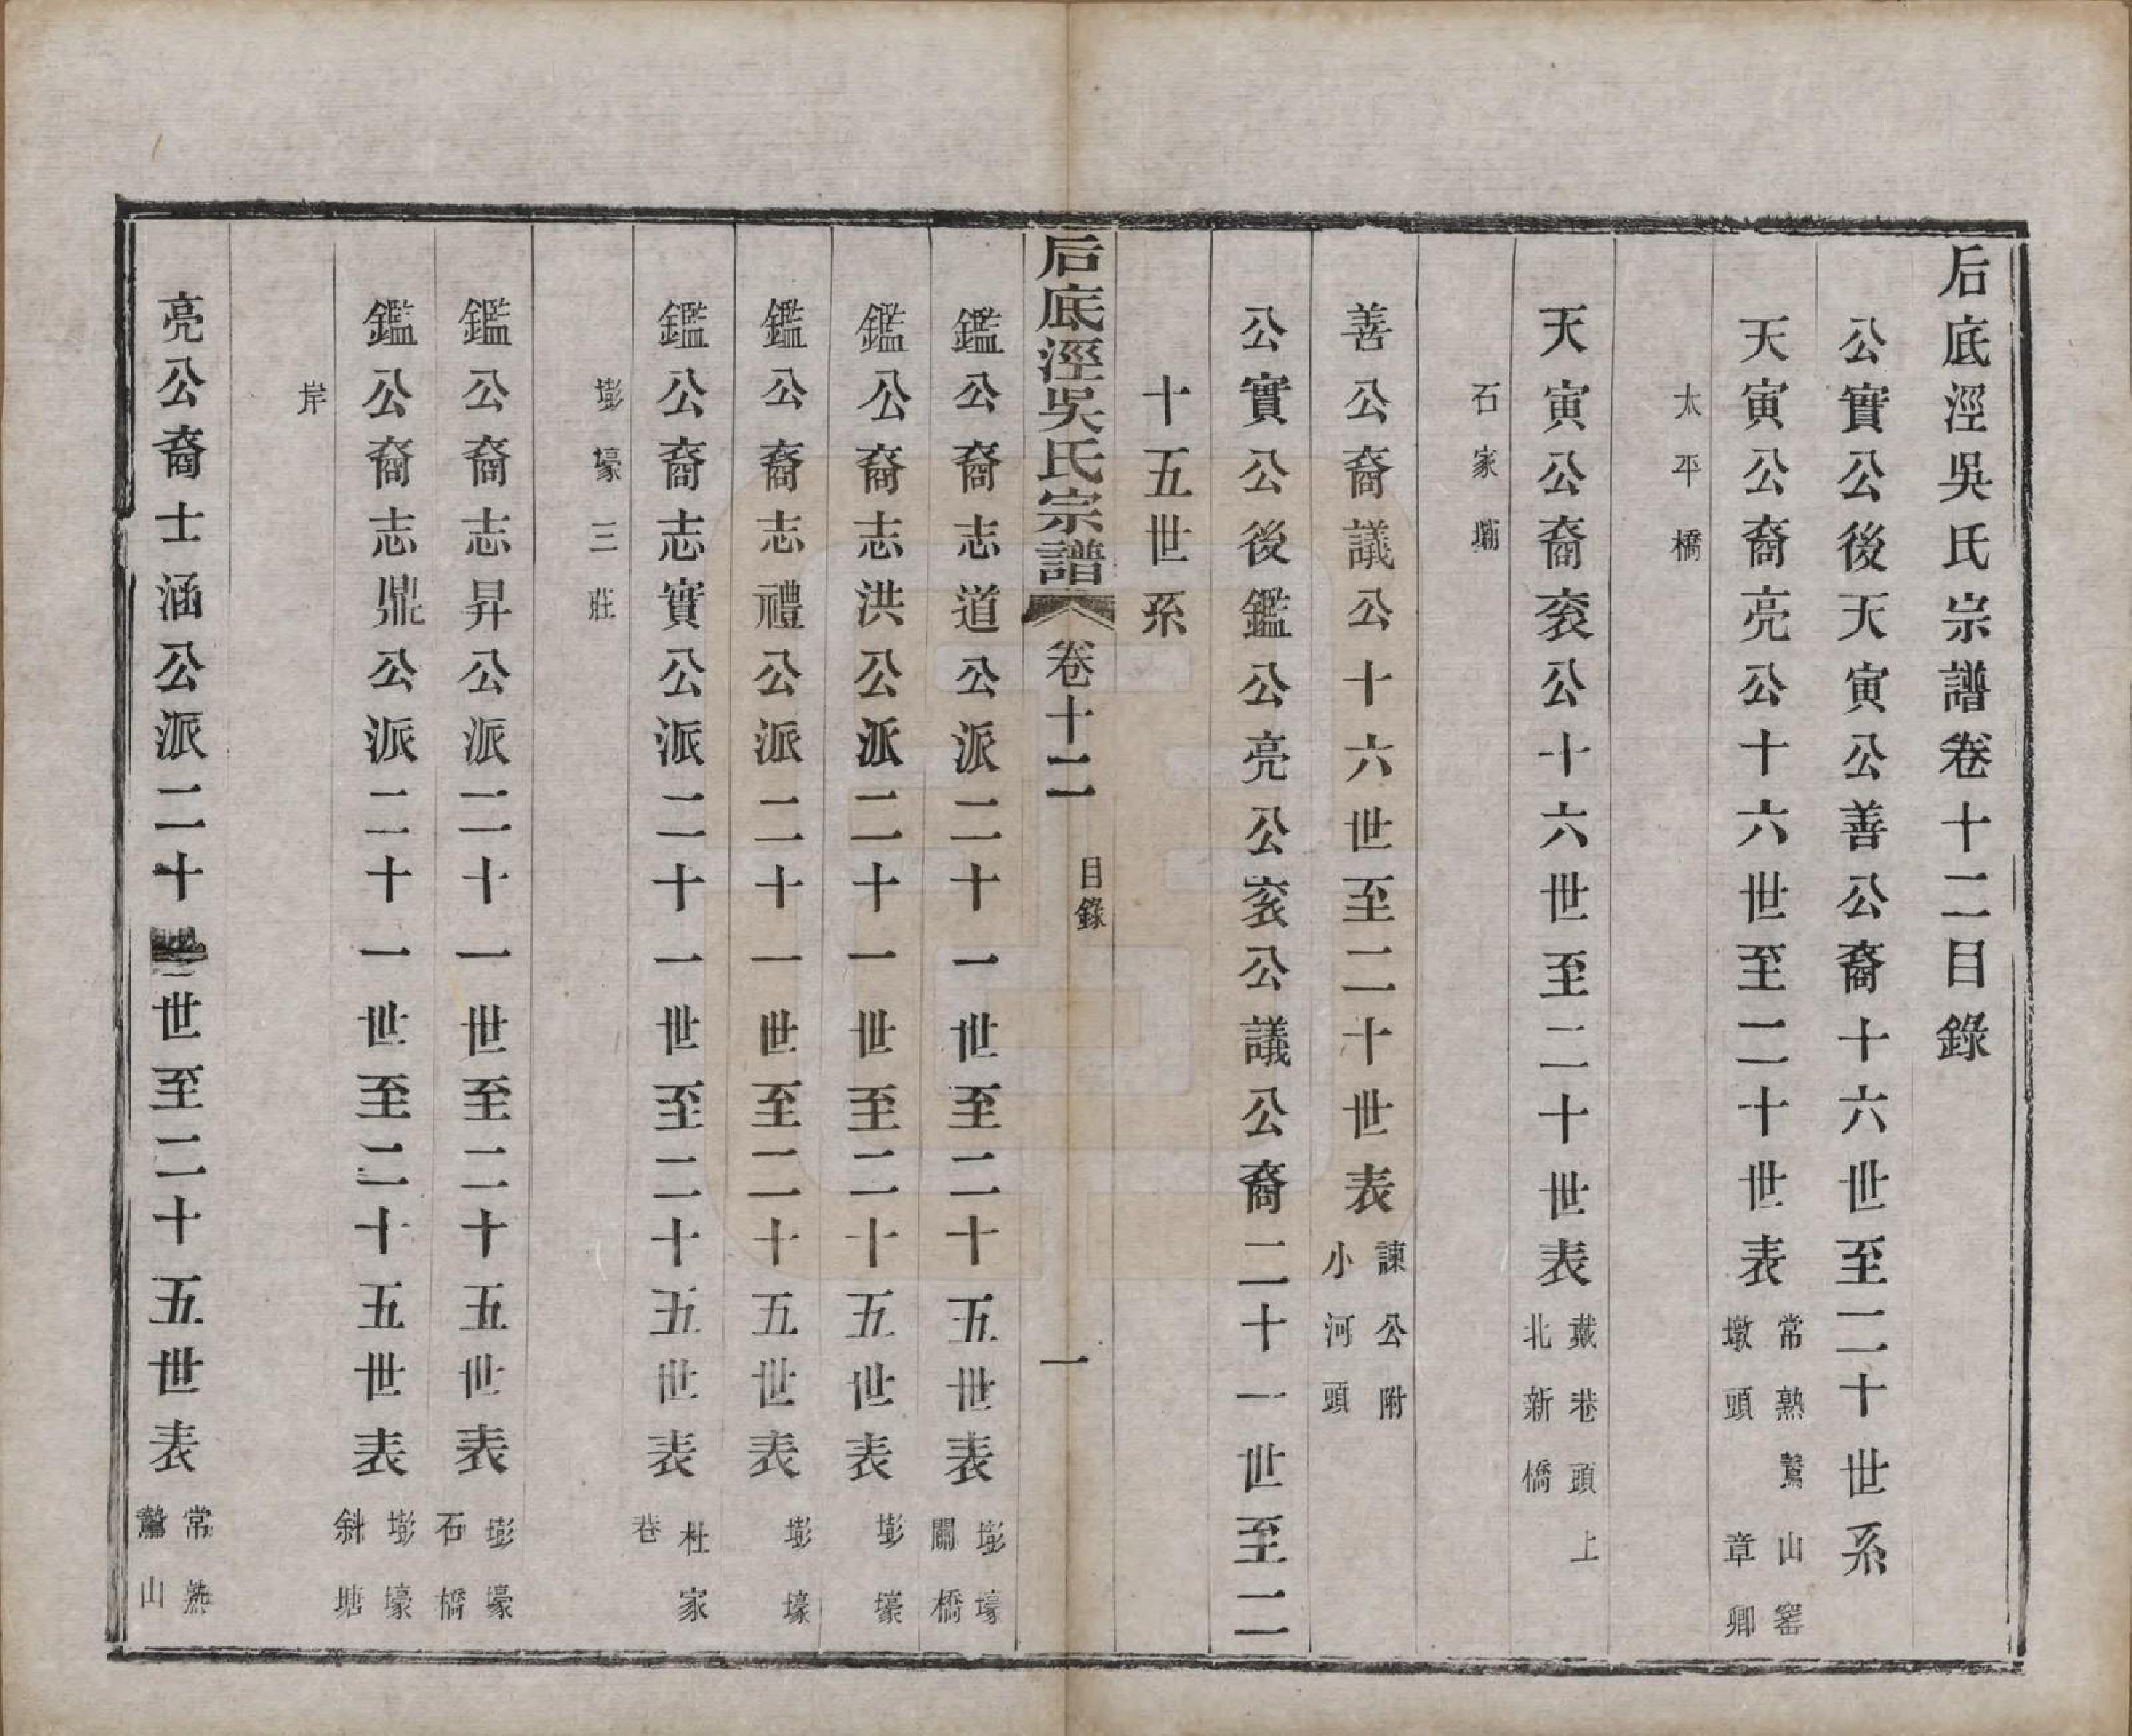 后底涇吳氏宗譜卷十二目錄
公實公後天寅公善公裔十六世至二十世系
天寅公裔亮公十六世至二十世表 常熟鶩山窰
墩頭 章卿
太平橋
天寅公裔袞公十六世至二十世表 戴巷頭上
北新橋
石家壩
善公裔議公十六世至二十世表 諫公附
小河頭
公實公後鑑公亮公袞公議公裔二十一世至二
十五世系
后底涇吳氏宗譜 卷十二 目錄 一
鑑公裔志道公派二十一世至二十五世表 塱壕
關橋
鑑公裔志洪公派二十一世至二十五世表 塱壕
鑑公裔志禮公派二十一世至二十五世表 塱壕
鑑公裔志實公派二十一世至二十五世表 杜家
巷
塱壕三莊
鑑公裔志昇公派二十一世至二十五世表 塱壕
石橋
鑑公裔志鼎公派二十一世至二十五世表 塱壕
斜塘
岸
亮公裔士涵公派二十一世至二十五世表 常熟
鶩山